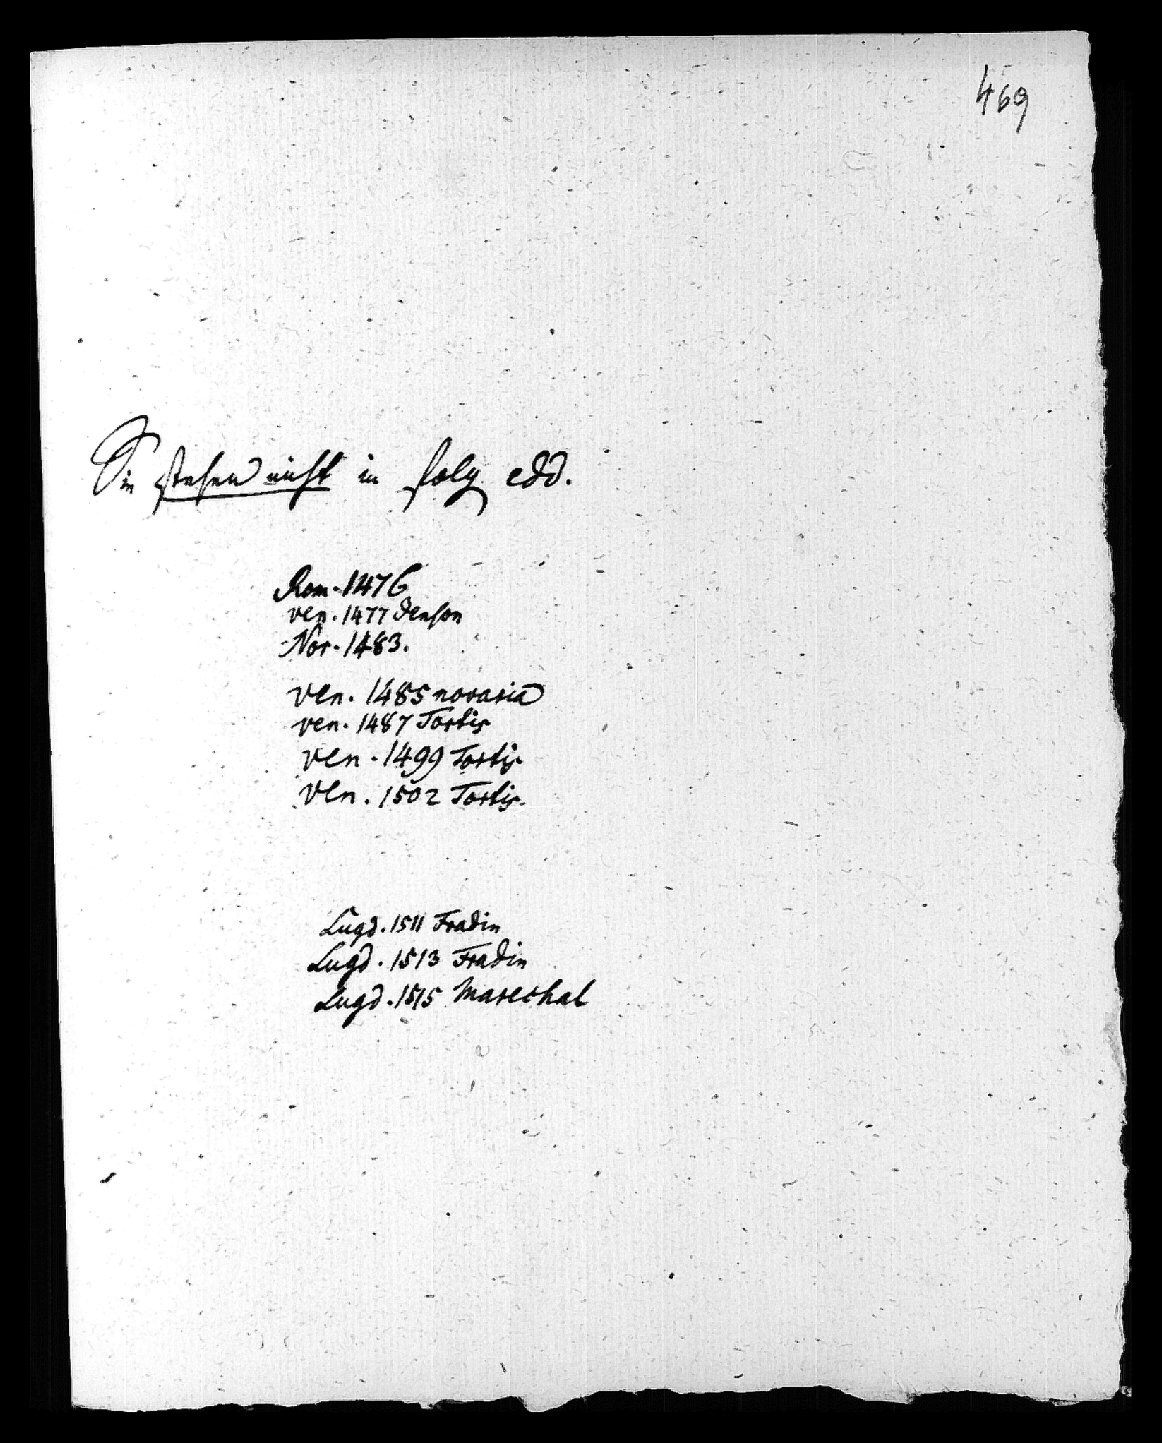 469
Sie stehen nicht in folg. edd.
Rom. 1476
Ven. 1477 Jenson
Nor. 1483.
Ven. 1485 novaria
Ven. 1487 Tortis
Ven. 1499 Tortis
Ven. 1502 Tortis.
Lugd. 1511 Fradin
Lugd. 1513 Fradin
Lugd. 1515 Marechal